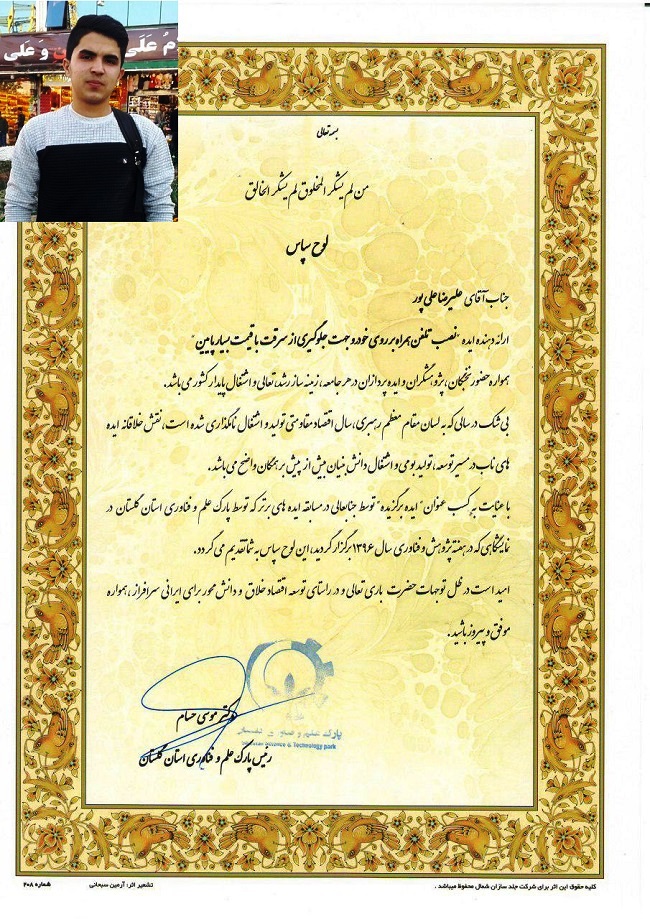 مُ عَلَى
وَ عَلَى
بسمه تعالی
من لم یشکر المخلوق لم یشکر الخالق
لوح سپاس
جناب آقای علیرضا علی پور
ارائه دهنده ایده "نصب تلفن همراه بر روی خودرو جهت جلوگیری از سرقت با قیمت بسیار پایین"
همواره حضور نخبگان، پژوهشگران و ایده پردازان در هر جامعه، زمینه ساز رشد، تعالی و اشتغال پایدار کشور می باشد.
بی شک در سالی که به لسان مقام معظم رهبری، سال اقتصاد مقاومتی تولید و اشتغال نامگذاری شده است، نقش خلاقانه ایده
های ناب در مسیر توسعه، تولید بومی و اشتغال دانش بنیان بیش از پیش بر همگان واضح می باشد.
با عنایت به کسب عنوان "ایده برگزیده" توسط جنابعالی در مسابقه ایده های برتر که توسط پارک علم و فناوری استان گلستان در
نمایشگاهی که در هفته پژوهش و فناوری سال ۱۳۹۶ برگزار گردید، این لوح سپاس به شما تقدیم می گردد.
امید است در ظل توجهات حضرت باری تعالی و در راستای توسعه اقتصاد خلاق و دانش محور برای ایرانی سرافراز، همواره
موفق و پیروز باشید.
دکتر موسی حسام
پارک علم و فناوری گلستان
Science & Technology park
رئیس پارک علم و فناوری استان گلستان
کلیه حقوق این اثر برای شرکت جلد سازان شمال محفوظ میباشد .
تشعیر اثر: آرمین سبحانی
شماره ۲۰۸